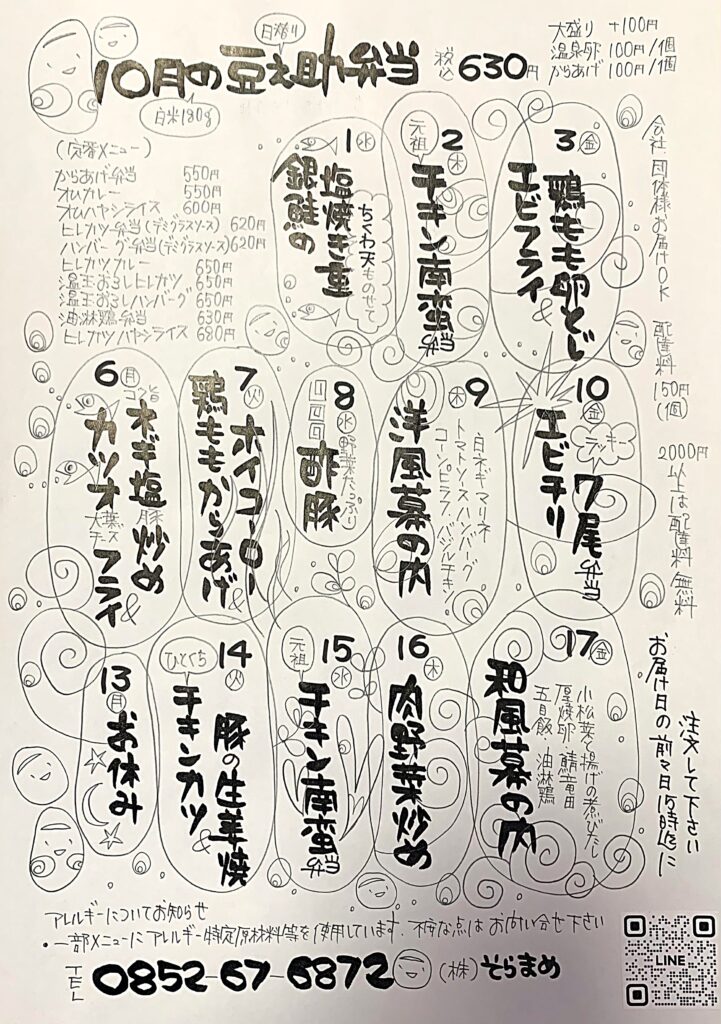 日替り
10月の豆之助弁当
税込 630円
白米180g
大盛り +100円
温泉卵 100円/1個
からあげ 100円/1個
(定番メニュー)
からあげ弁当 550円
オムカレー 550円
オムハヤシライス 600円
ヒレカツ弁当(デミグラスソース) 620円
ハンバーグ弁当(デミグラスソース) 620円
ヒレカツカレー 650円
温玉おろしヒレカツ 650円
温玉おろしハンバーグ 650円
油淋鶏弁当 630円
ヒレカツハヤシライス 680円
1 水
銀鮭の
塩焼き重
ちくわ天ものせて
2 木
元祖
チキン南蛮弁当
3 金
鶏もも卵とじ
&
エビフライ
会社・団体様お届けOK
配達料
150円
(1個)
2000円
以上は配達料無料
6 月
ネギ塩豚炒め
&
カツオフライ
大葉
チーズ
7 火
ホイコーロー
&
鶏ももからあげ
8 水
野菜たっぷり
酢豚
9 木
洋風幕の内
白ネギマリネ
トマトソースハンバーグ
コーンピラフ・バジルチキン
10 金
ラッキー
7尾
エビチリ
弁当
13 月
お休み
14 火
豚の生姜焼
&
ひとくち
チキンカツ
15 水
元祖
チキン南蛮弁当
16 木
肉野菜炒め
17 金
和風幕の内
小松菜と揚げの煮びたし
厚焼卵・鯖竜田
五目飯・油淋鶏
お届け日の前々日15時迄に
注文して下さい
アレルギーについてお知らせ
・一部メニューにアレルギー特定原材料等を使用しています。不安な点はお問い合せ下さい
TEL 0852-67-6872 (株)そらまめ
LINE